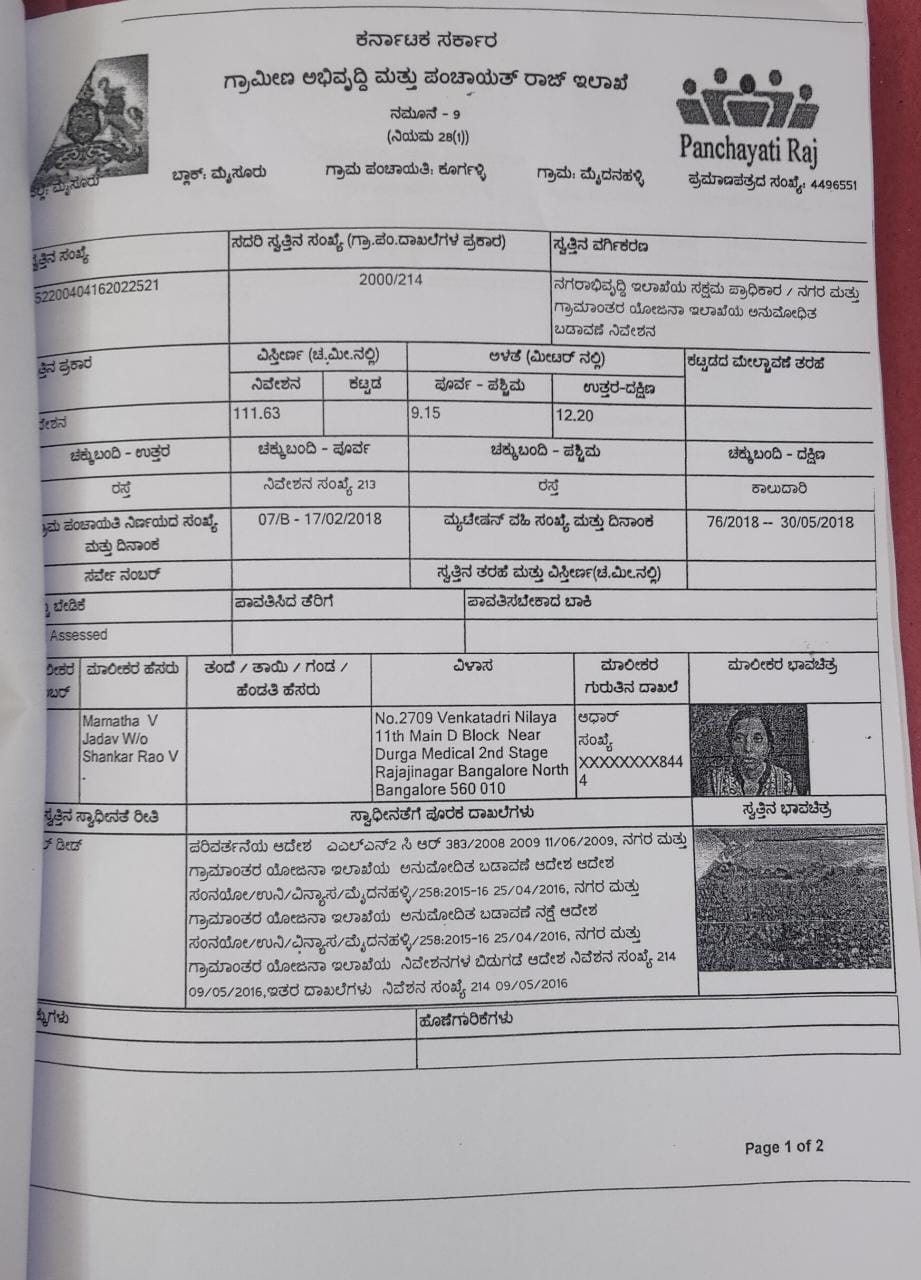 ಕರ್ನಾಟಕ ಸರ್ಕಾರ
ಗ್ರಾಮೀಣ ಅಭಿವೃದ್ಧಿ ಮತ್ತು ಪಂಚಾಯತ್ ರಾಜ್ ಇಲಾಖೆ
ನಮೂನೆ - 9
(ನಿಯಮ 28(1))
Panchayati Raj
ಮೈಸೂರು ಬ್ಲಾಕ್: ಮೈಸೂರು ಗ್ರಾಮ ಪಂಚಾಯತಿ: ಕೂರ್ಗಳ್ಳಿ ಗ್ರಾಮ: ಮೈದನಹಳ್ಳಿ ಪ್ರಮಾಣಪತ್ರದ ಸಂಖ್ಯೆ: 4496551
ಸ್ವತ್ತಿನ ಸಂಖ್ಯೆ ಸದರಿ ಸ್ವತ್ತಿನ ಸಂಖ್ಯೆ (ಗ್ರಾ.ಪಂ.ದಾಖಲೆಗಳ ಪ್ರಕಾರ) ಸ್ವತ್ತಿನ ವರ್ಗಿಕರಣ
52200404162022521 2000/214 ನಗರಾಭಿವೃದ್ಧಿ ಇಲಾಖೆಯ ಸಕ್ಷಮ ಪ್ರಾಧಿಕಾರ / ನಗರ ಮತ್ತು
ಗ್ರಾಮಾಂತರ ಯೋಜನಾ ಇಲಾಖೆಯ ಅನುಮೋಧಿತ
ಬಡಾವಣೆ ನಿವೇಶನ
ತ್ತಿನ ಪ್ರಕಾರ ವಿಸ್ತೀರ್ಣ (ಚ.ಮೀ.ನಲ್ಲಿ) ಅಳತೆ (ಮೀಟರ್ ನಲ್ಲಿ) ಕಟ್ಟಡದ ಮೇಲ್ಚಾವಣೆ ತರಹೆ
ನಿವೇಶನ ಕಟ್ಟಡ ಪೂರ್ವ - ಪಶ್ಚಿಮ ಉತ್ತರ-ದಕ್ಷಿಣ
ವೇಶನ 111.63 9.15 12.20
ಚಕ್ಕುಬಂದಿ - ಉತ್ತರ ಚಕ್ಕುಬಂದಿ - ಪೂರ್ವ ಚಕ್ಕುಬಂದಿ - ಪಶ್ಚಿಮ ಚಕ್ಕುಬಂದಿ - ದಕ್ಷಿಣ
ರಸ್ತೆ ನಿವೇಶನ ಸಂಖ್ಯೆ 213 ರಸ್ತೆ ಕಾಲುದಾರಿ
ಾಮ ಪಂಚಾಯತಿ ನಿರ್ಣಯದ ಸಂಖ್ಯೆ 07/B - 17/02/2018 ಮ್ಯುಟೇಷನ್ ವಹಿ ಸಂಖ್ಯೆ ಮತ್ತು ದಿನಾಂಕ 76/2018 -- 30/05/2018
ಮತ್ತು ದಿನಾಂಕ
ಸರ್ವೇ ನಂಬರ್ ಸ್ವತ್ತಿನ ತರಹೆ ಮತ್ತು ವಿಸ್ತೀರ್ಣ(ಚ.ಮೀ.ನಲ್ಲಿ)
ಬೇಡಿಕೆ ಪಾವತಿಸಿದ ತೆರಿಗೆ ಪಾವತಿಸಬೇಕಾದ ಬಾಕಿ
Assessed
ಲೀಕರ ಮಾಲೀಕರ ಹೆಸರು ತಂದೆ / ತಾಯಿ / ಗಂಡ / ವಿಳಾಸ ಮಾಲೀಕರ ಮಾಲೀಕರ ಭಾವಚಿತ್ರ
ಬರ್ ಹೆಂಡತಿ ಹೆಸರು ಗುರುತಿನ ದಾಖಲೆ
Mamatha V
Jadav W/o
Shankar Rao V
No.2709 Venkatadri Nilaya
11th Main D Block Near
Durga Medical 2nd Stage
Rajajinagar Bangalore North
Bangalore 560 010
ಆಧಾರ್
ಸಂಖ್ಯೆ
XXXXXXXX844
4
ಸ್ವತ್ತಿನ ಸ್ವಾಧೀನತೆ ರೀತಿ ಸ್ವಾಧೀನತೆಗೆ ಪೂರಕ ದಾಖಲೆಗಳು ಸ್ವತ್ತಿನ ಭಾವಚಿತ್ರ
ಡೀಡ್ ಪರಿವರ್ತನೆಯ ಆದೇಶ ಎಎಲ್ಎನ್2 ಸಿ ಆರ್ 383/2008 2009 11/06/2009, ನಗರ ಮತ್ತು
ಗ್ರಾಮಾಂತರ ಯೋಜನಾ ಇಲಾಖೆಯ ಅನುಮೋದಿತ ಬಡಾವಣೆ ಆದೇಶ ಆದೇಶ
ಸಂನಯೋ/ಉನಿ/ವಿನ್ಯಾಸ/ಮೈದನಹಳ್ಳಿ/258:2015-16 25/04/2016, ನಗರ ಮತ್ತು
ಗ್ರಾಮಾಂತರ ಯೋಜನಾ ಇಲಾಖೆಯ ಅನುಮೋದಿತ ಬಡಾವಣೆ ನಕ್ಷೆ ಆದೇಶ
ಸಂನಯೋ/ಉನಿ/ವಿನ್ಯಾಸ/ಮೈದನಹಳ್ಳಿ/258:2015-16 25/04/2016, ನಗರ ಮತ್ತು
ಗ್ರಾಮಾಂತರ ಯೋಜನಾ ಇಲಾಖೆಯ ನಿವೇಶನಗಳ ಬಿಡುಗಡೆ ಆದೇಶ ನಿವೇಶನ ಸಂಖ್ಯೆ 214
09/05/2016,ಇತರ ದಾಖಲೆಗಳು ನಿವೇಶನ ಸಂಖ್ಯೆ 214 09/05/2016
ಕ್ಕುಗಳು ಹೊಣೆಗಾರಿಕೆಗಳು
Page 1 of 2